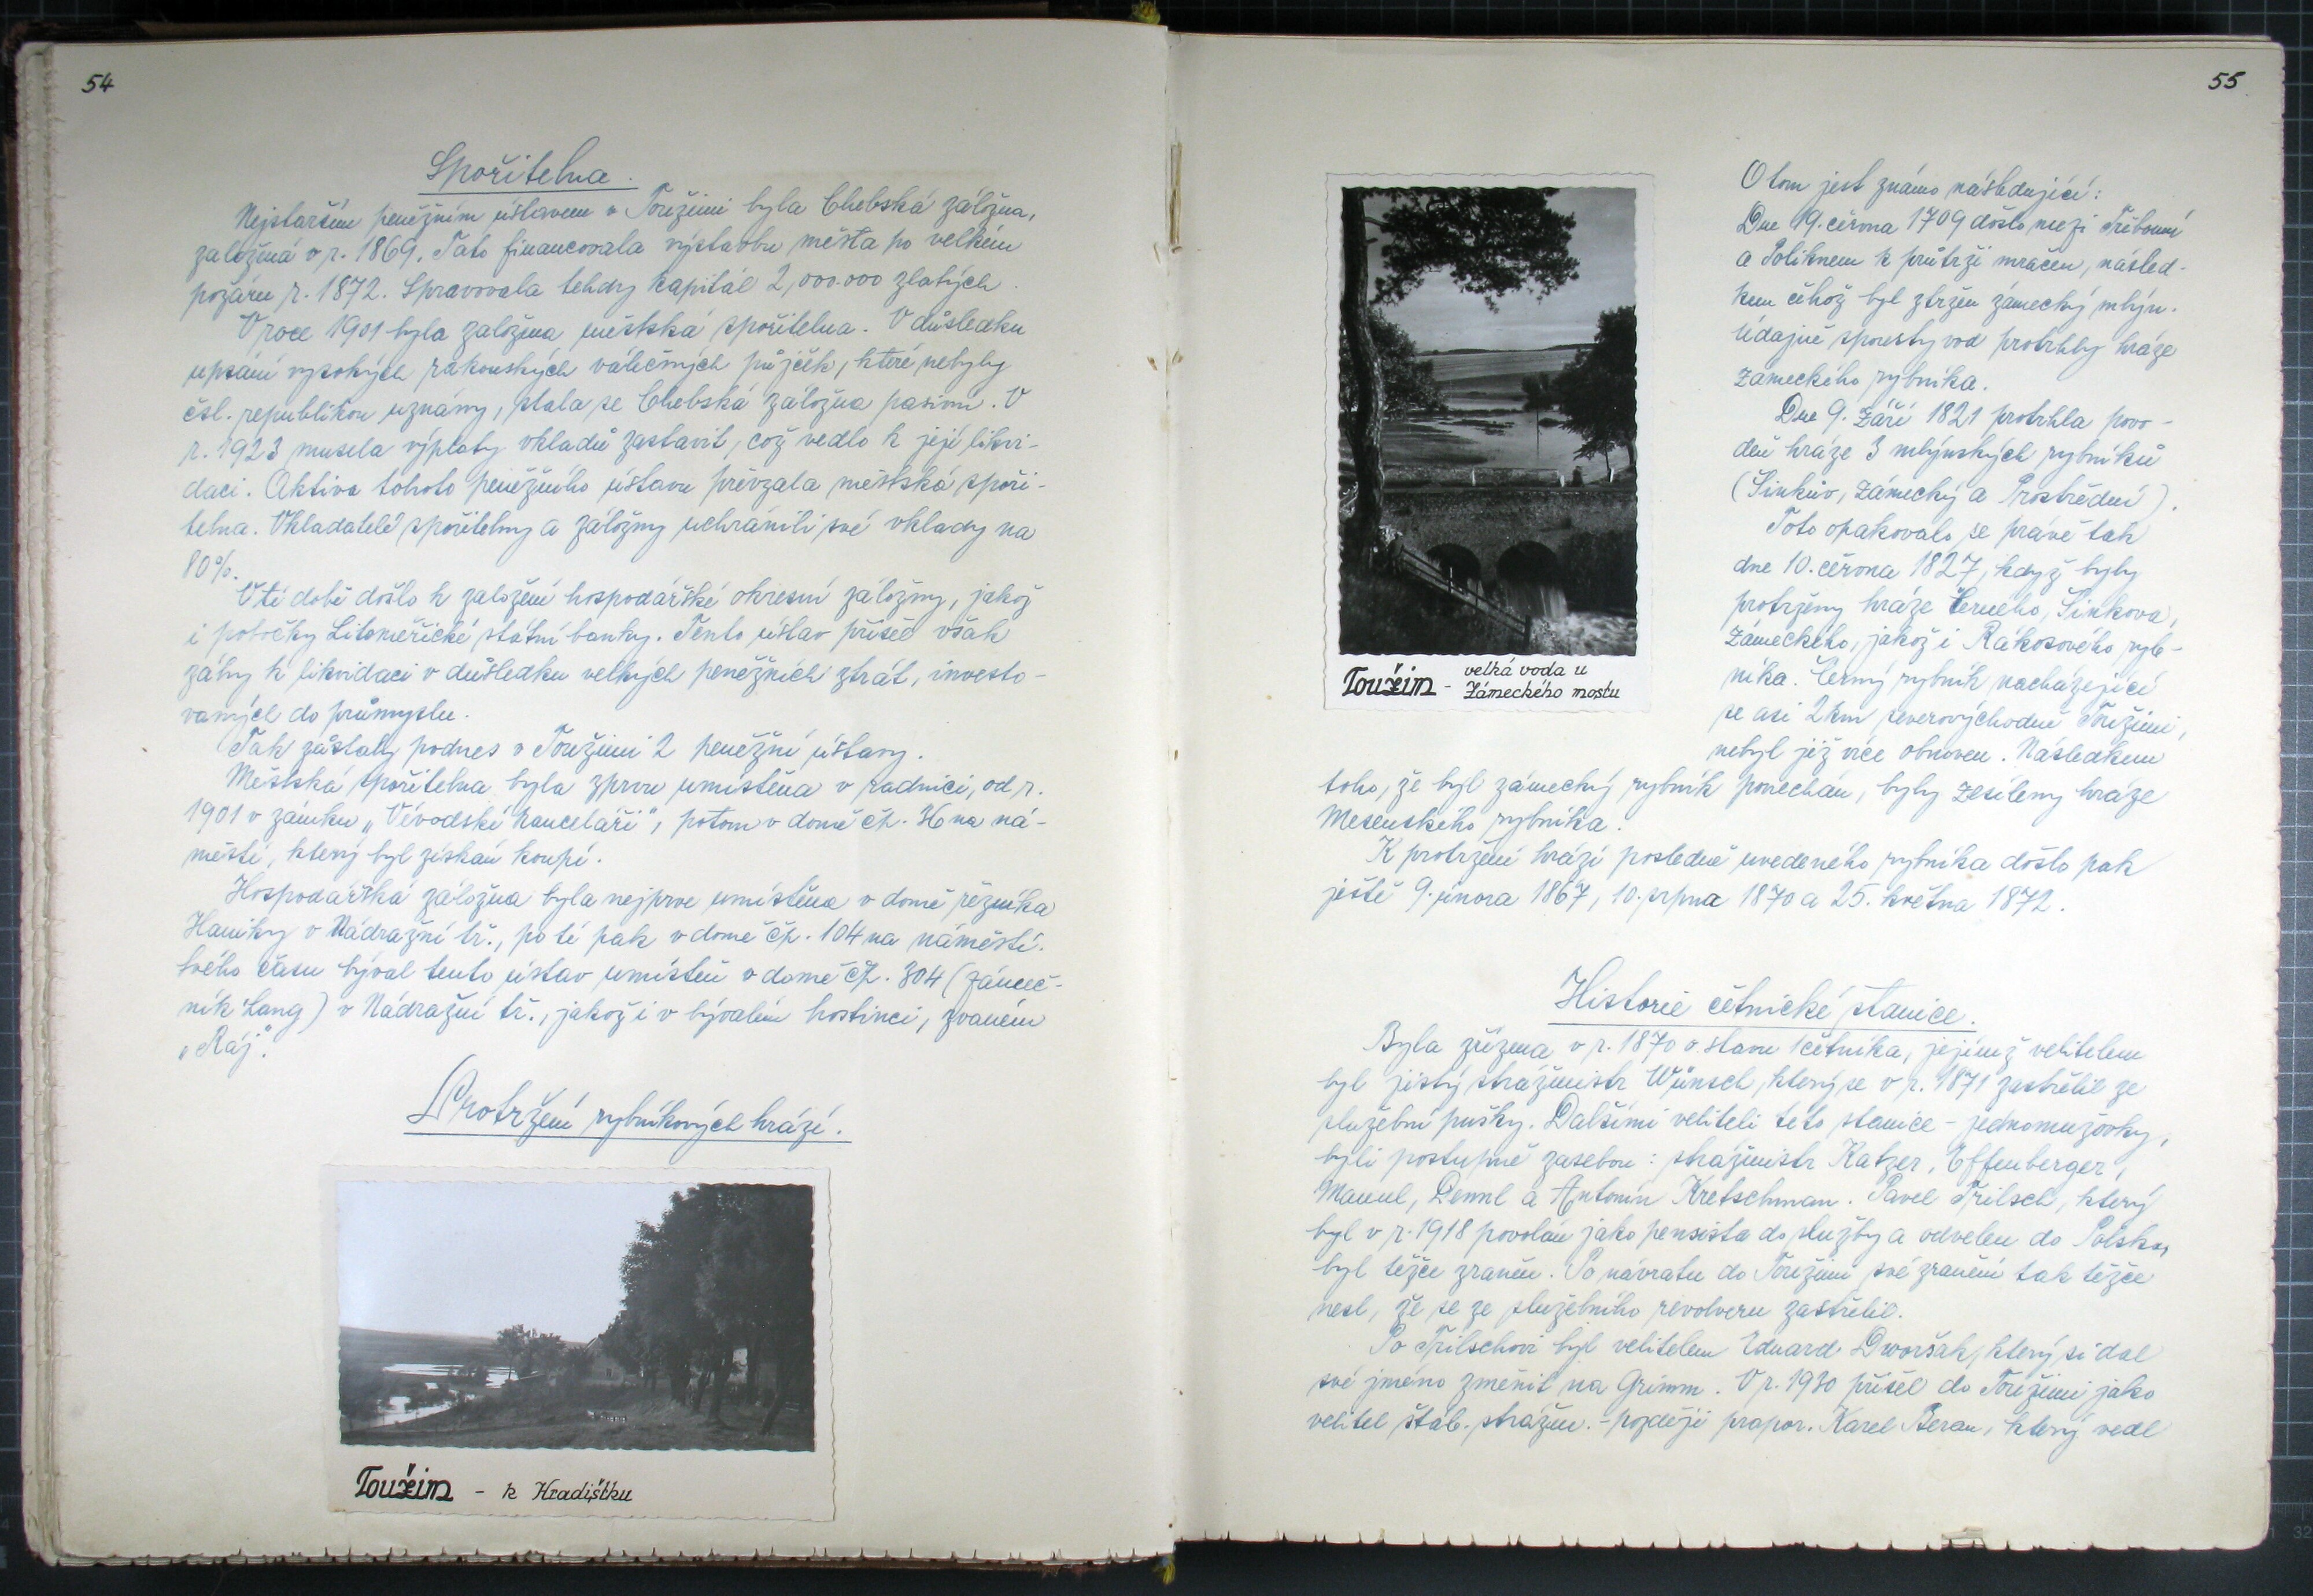 54
Spořitelna.
Nejstarším peněžním ústavem v Toužimi byla Chebská záložna,
založená v r. 1869. Tato financovala výstavbu města po velkém
požáru r. 1872. Spravovala tehdy kapitál 2,000.000 zlatých.
V roce 1901 byla založena městská spořitelna. V důsledku
upsání vysokých rakouských válečných půjček, které nebyly
čsl. republikou uznány, stala se Chebská záložna pasivní. V
r. 1923 musela výplaty vkladů zastavit, což vedlo k její likvi-
daci. Aktiva tohoto peněžního ústavu převzala městská spoři-
telna. Vkladatelé spořitelny a záložny uchránili své vklady na
80%.
V té době došlo k založení hospodářské okresní záložny, jakož
i pobočky Litoměřické státní banky. Tento ústav přišel však
záhy k likvidaci v důsledku velkých peněžních ztrát, investo-
vaných do průmyslu.
Tak zůstaly podnes v Toužimi 2 peněžní ústavy.
Městská spořitelna byla zprvu umístěna v radnici, od r.
1901 v zámku „Vévodské kanceláři", potom v domě čp. 36 na ná-
městí, který byl získán koupí.
Hospodářská záložna byla nejprve umístěna v domě řezníka
Haniky v Nádražní tř., po té pak v domě čp. 104 na náměstí.
Svého času býval tento ústav umístěn v domě čp. 304 (zámeč-
ník Lang) v Nádražní tř., jakož i v bývalém hostinci, zvaném
„Ráj".
Protržení rybníkových hrází.
Toužim - k Hradištku
55
O tom jest známo následující:
Dne 19. června 1709 došlo mezi Třebouní
a Poliknem k průtrži mračen, násled-
kem čehož byl stržen zámecký mlýn.
Údajně spousty vod protrhly hráze
zámeckého rybníka.
Dne 9. září 1821 protrhla povo-
deň hráze 3 mlýnských rybníků
(Šinkův, Zámecký a Prostřední).
Toto opakovalo se právě tak
dne 10. června 1827, když byly
protrženy hráze Černého, Šinkova,
Zámeckého, jakož i Rákosového ryb-
níka. Černý rybník nacházející
se asi 2 km severovýchodně Toužimi,
nebyl již více obnoven. Následkem
toho, že byl zámecký rybník ponechán, byly zesíleny hráze
Mesenského rybníka.
K protržení hrází posledně uvedeného rybníka došlo pak
ještě 9. února 1867, 10. srpna 1870 a 25. května 1872.
Toužim - velká voda u
Zámeckého mostu
Historie četnické stanice.
Byla zřízena v r. 1870 o stavu 1 četníka, jejímž velitelem
byl jistý strážmistr Wünsch, který se v r. 1871 zastřelil ze
služební pušky. Dalšími veliteli této stanice - jednomužovky,
byli postupně zasebou: strážmistr Katzer, Effenberger,
Mannl, Demml a Antonín Kretschman. Pavel Trilsch, který
byl v r. 1918 povolán jako pensista do služby a odvelen do Polska,
byl těžce zraněn. Po návratu do Toužimi své zranění tak těžce
nesl, že se ze služebního revolveru zastřelil.
Po Trilschovi byl velitelem Eduard Dworžak, který si dal
své jméno změnit na Grimm. V r. 1930 přišel do Toužimi jako
velitel štáb. strážm. - později prapor. Karel Beran, který vedl